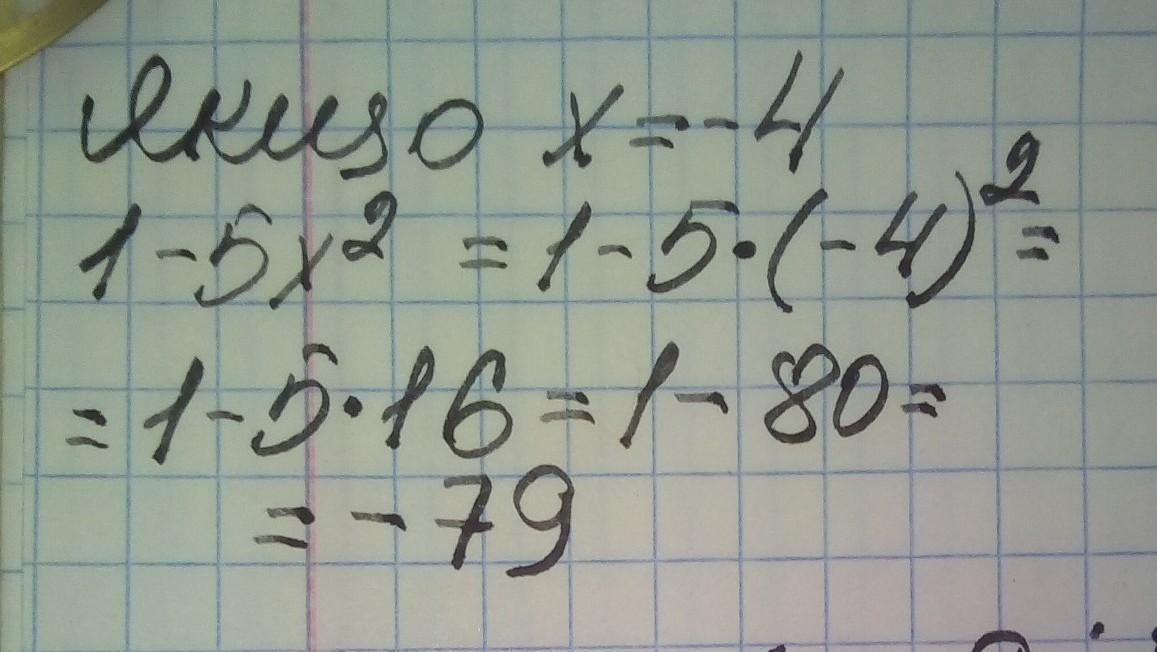 Якщо x = -4
1 - 5x² = 1 - 5 · (-4)² =
= 1 - 5 · 16 = 1 - 80 =
= - 79